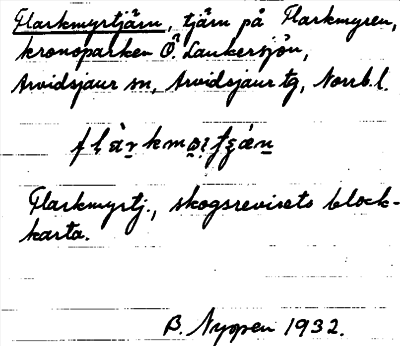 Flarkmyrtjärn, tjärn på Flarkmyren,
kronoparken Ö. Lankersjön,
Arvidsjaur sn, Arvidsjaur tg, Norrb. l.
Flarkmyrtj., skogsrevisets block-
karta.
B. Nygren 1932.